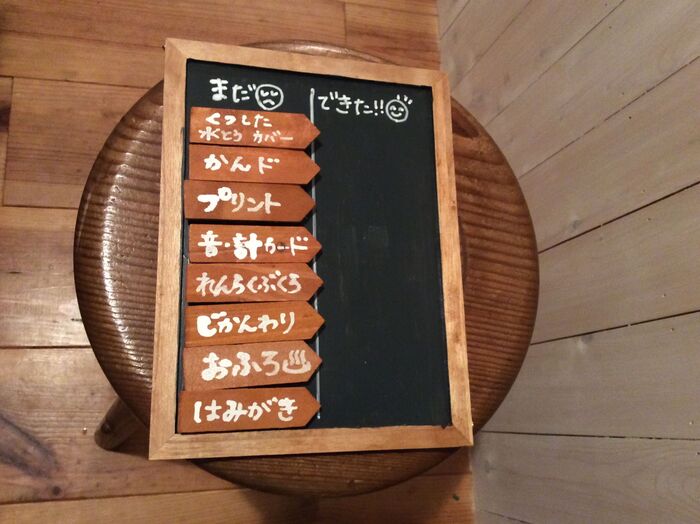 まだ
できた!!
くつした
水とう カバー
かんド
プリント
音・計カード
れんらくぶくろ
じかんわり
おふろ♨
はみがき